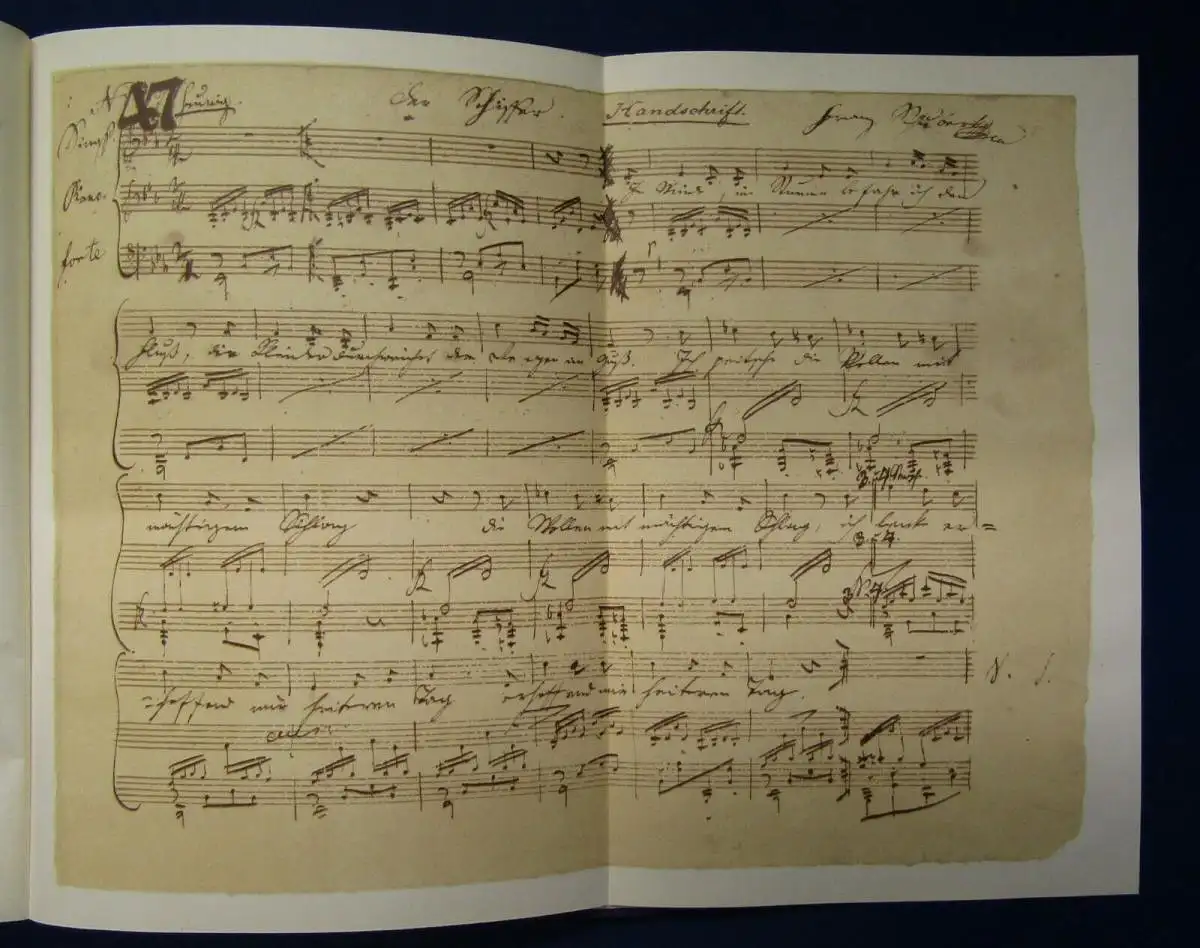 47
Der Schiffer. Handschrift. Franz
Singst.
Piano-
forte
Im Winde, im Sturme befahr ich den
Fluß, die Kleider durchweichet der Regen im Guß. Ich peitsche die Wellen mit
mächtigem Schlag die Wellen mit mächtigem Schlag, er=
=hoffend mir heiteren Tag erhoffend mir heiteren Tag.
V. S.